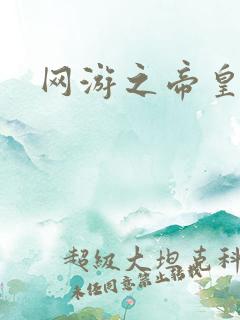 网游之帝皇
超级大坦克科
未经同意禁止转载